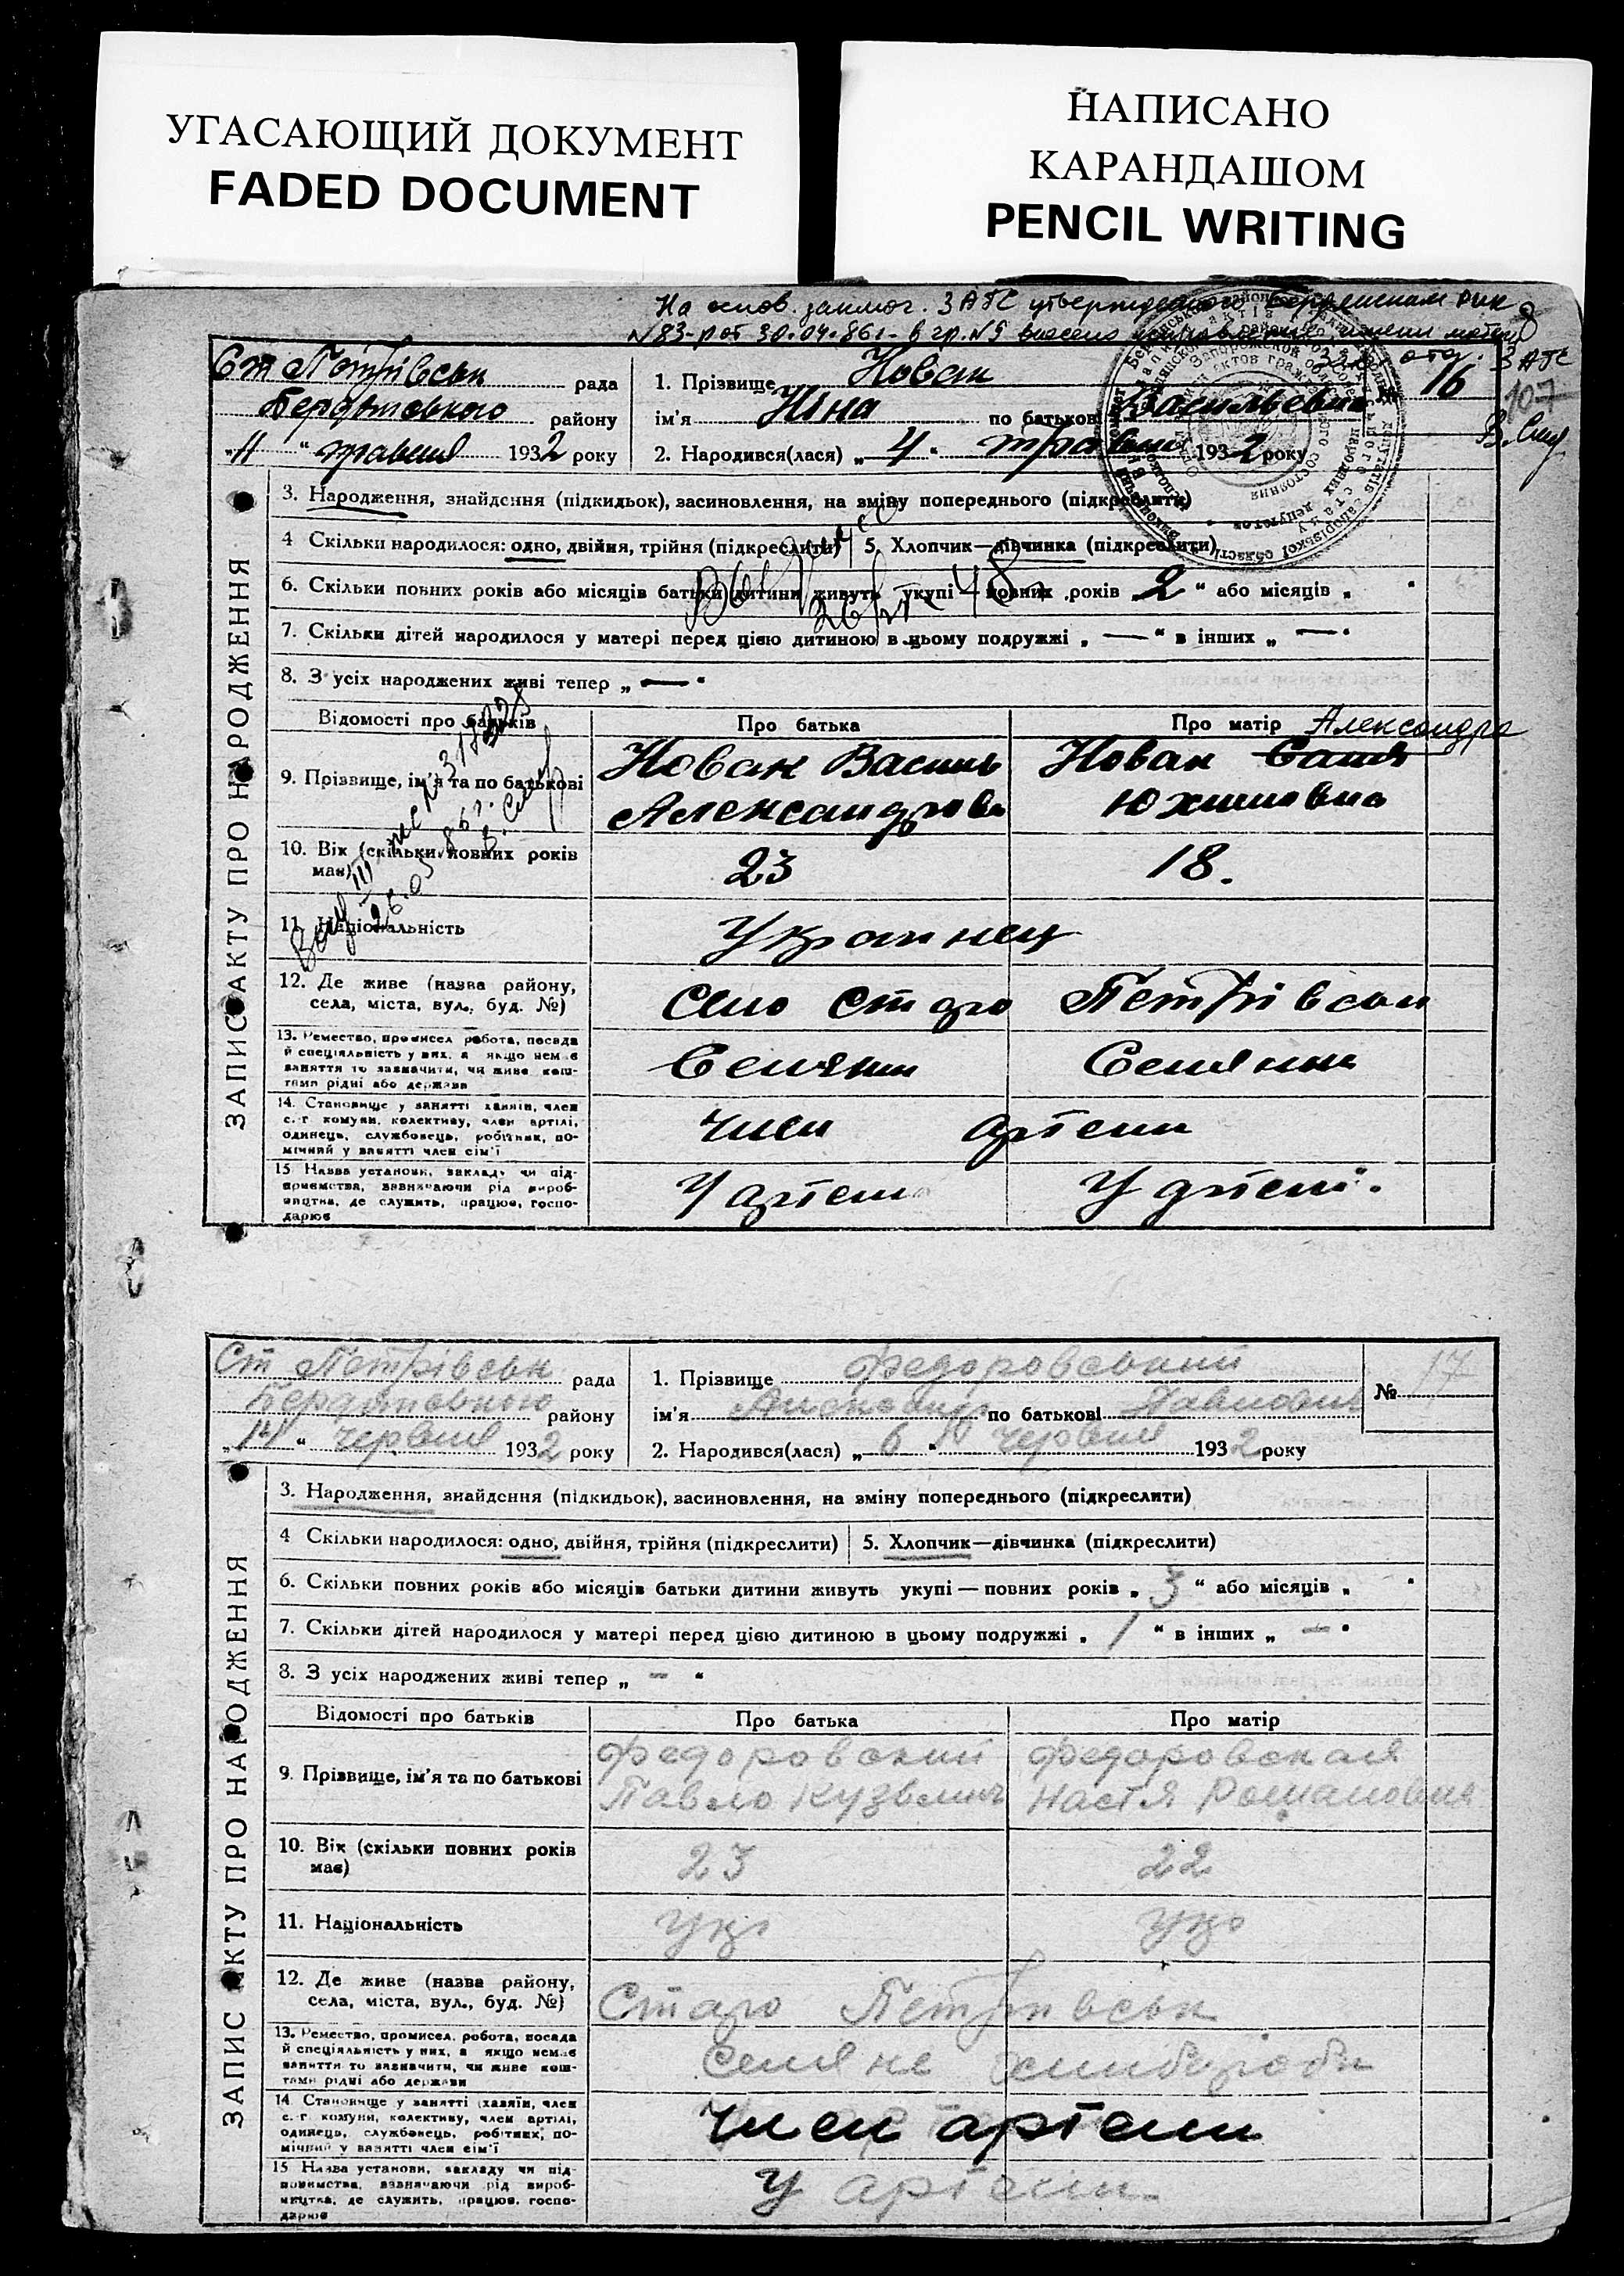 УГАСАЮЩИЙ ДОКУМЕНТ
FADED DOCUMENT
НАПИСАНО
КАРАНДАШОМ
PENCIL WRITING
На основ. заключ. ЗАГС утвержденного Бердянским РИК
№83-р от 30.04.86г. в гр. №9 внесено имени матери
отд. ЗАГС
107
ЗАПИС АКТУ ПРО НАРОДЖЕННЯ
Ст Петрівськ рада
Бердянського району
"11" травня 1932 року
1. Прізвище Новак
ім'я Ніна по батькові Васильевна
№ 16
2. Народився(лася) „4“ травня 1932 року
3. Народження, знайдення (підкидьок), засиновлення, на зміну попереднього (підкреслити)
4 Скільки народилося: одно, двійня, трійня (підкреслити) 5. Хлопчик—дівчинка (підкреслити)
6. Скільки повних років або місяців батьки дитини живуть укупі — повних років „2“ або місяців „ “
7. Скільки дітей народилося у матері перед цією дитиною в цьому подружжі „—“ в інших „—“
8. З усіх народжених живі тепер „—“
Відомості про батьків Про батька Про матір Александра
9. Прізвище, ім'я та по батькові Новак Василь Новак Саша
Александрови Юхимовна
10. Вік (скільки повних років має) 23 18.
11. Національність Украинец
12. Де живе (назва району, Село Старо Петрівськ
села, міста, вул., буд. №)
13. Ремество, промисел, робота, посада Селянин Селянка
й спеціяльність у них, а якщо немає
заняття то зазначити, чи живе кош-
тами рідні або держави
14. Становище у занятті хазяїн, член член артели
с.-г комуни, колективу, член артілі,
одинець, службовець, робітник, по-
мічний у занятті член сім'ї
15 Назва установи, закладу чи під- У артели У артелі.
приємства, зазначаючи рід вироб-
ництва, де служить, працює, госпо-
дарює
ЗАПИС АКТУ ПРО НАРОДЖЕННЯ
Ст Петрівськ рада
Бердянського району
"14" червня 1932 року
1. Прізвище Федоровський
ім'я Александр по батькові Павлович
№ 17
2. Народився(лася) „6“ червня 1932 року
3. Народження, знайдення (підкидьок), засиновлення, на зміну попереднього (підкреслити)
4 Скільки народилося: одно, двійня, трійня (підкреслити) 5. Хлопчик—дівчинка (підкреслити)
6. Скільки повних років або місяців батьки дитини живуть укупі — повних років „3“ або місяців „ “
7. Скільки дітей народилося у матері перед цією дитиною в цьому подружжі „1“ в інших „—“
8. З усіх народжених живі тепер „—“
Відомості про батьків Про батька Про матір
9. Прізвище, ім'я та по батькові Федоровский Федоровская
Павло Кузьмич Настя Романовна
10. Вік (скільки повних років має) 23 22
11. Національність Укр Укр
12. Де живе (назва району, Старо Петрівськ
села, міста, вул., буд. №)
13. Ремество, промисел, робота, посада Селяне хлибороби
й спеціяльність у них, а якщо немає
заняття то зазначити, чи живе кош-
тами рідні або держави
14 Становище у занятті (хазяїн, член член артели
с.-г комуни, колективу, член артілі,
одинець, службовець, робітник, по-
мічний у занятті член сім'ї
15 Назва установи, закладу чи під- У артели
приємства, зазначаючи рід вироб-
ництва, де служить, працює, госпо-
дарює